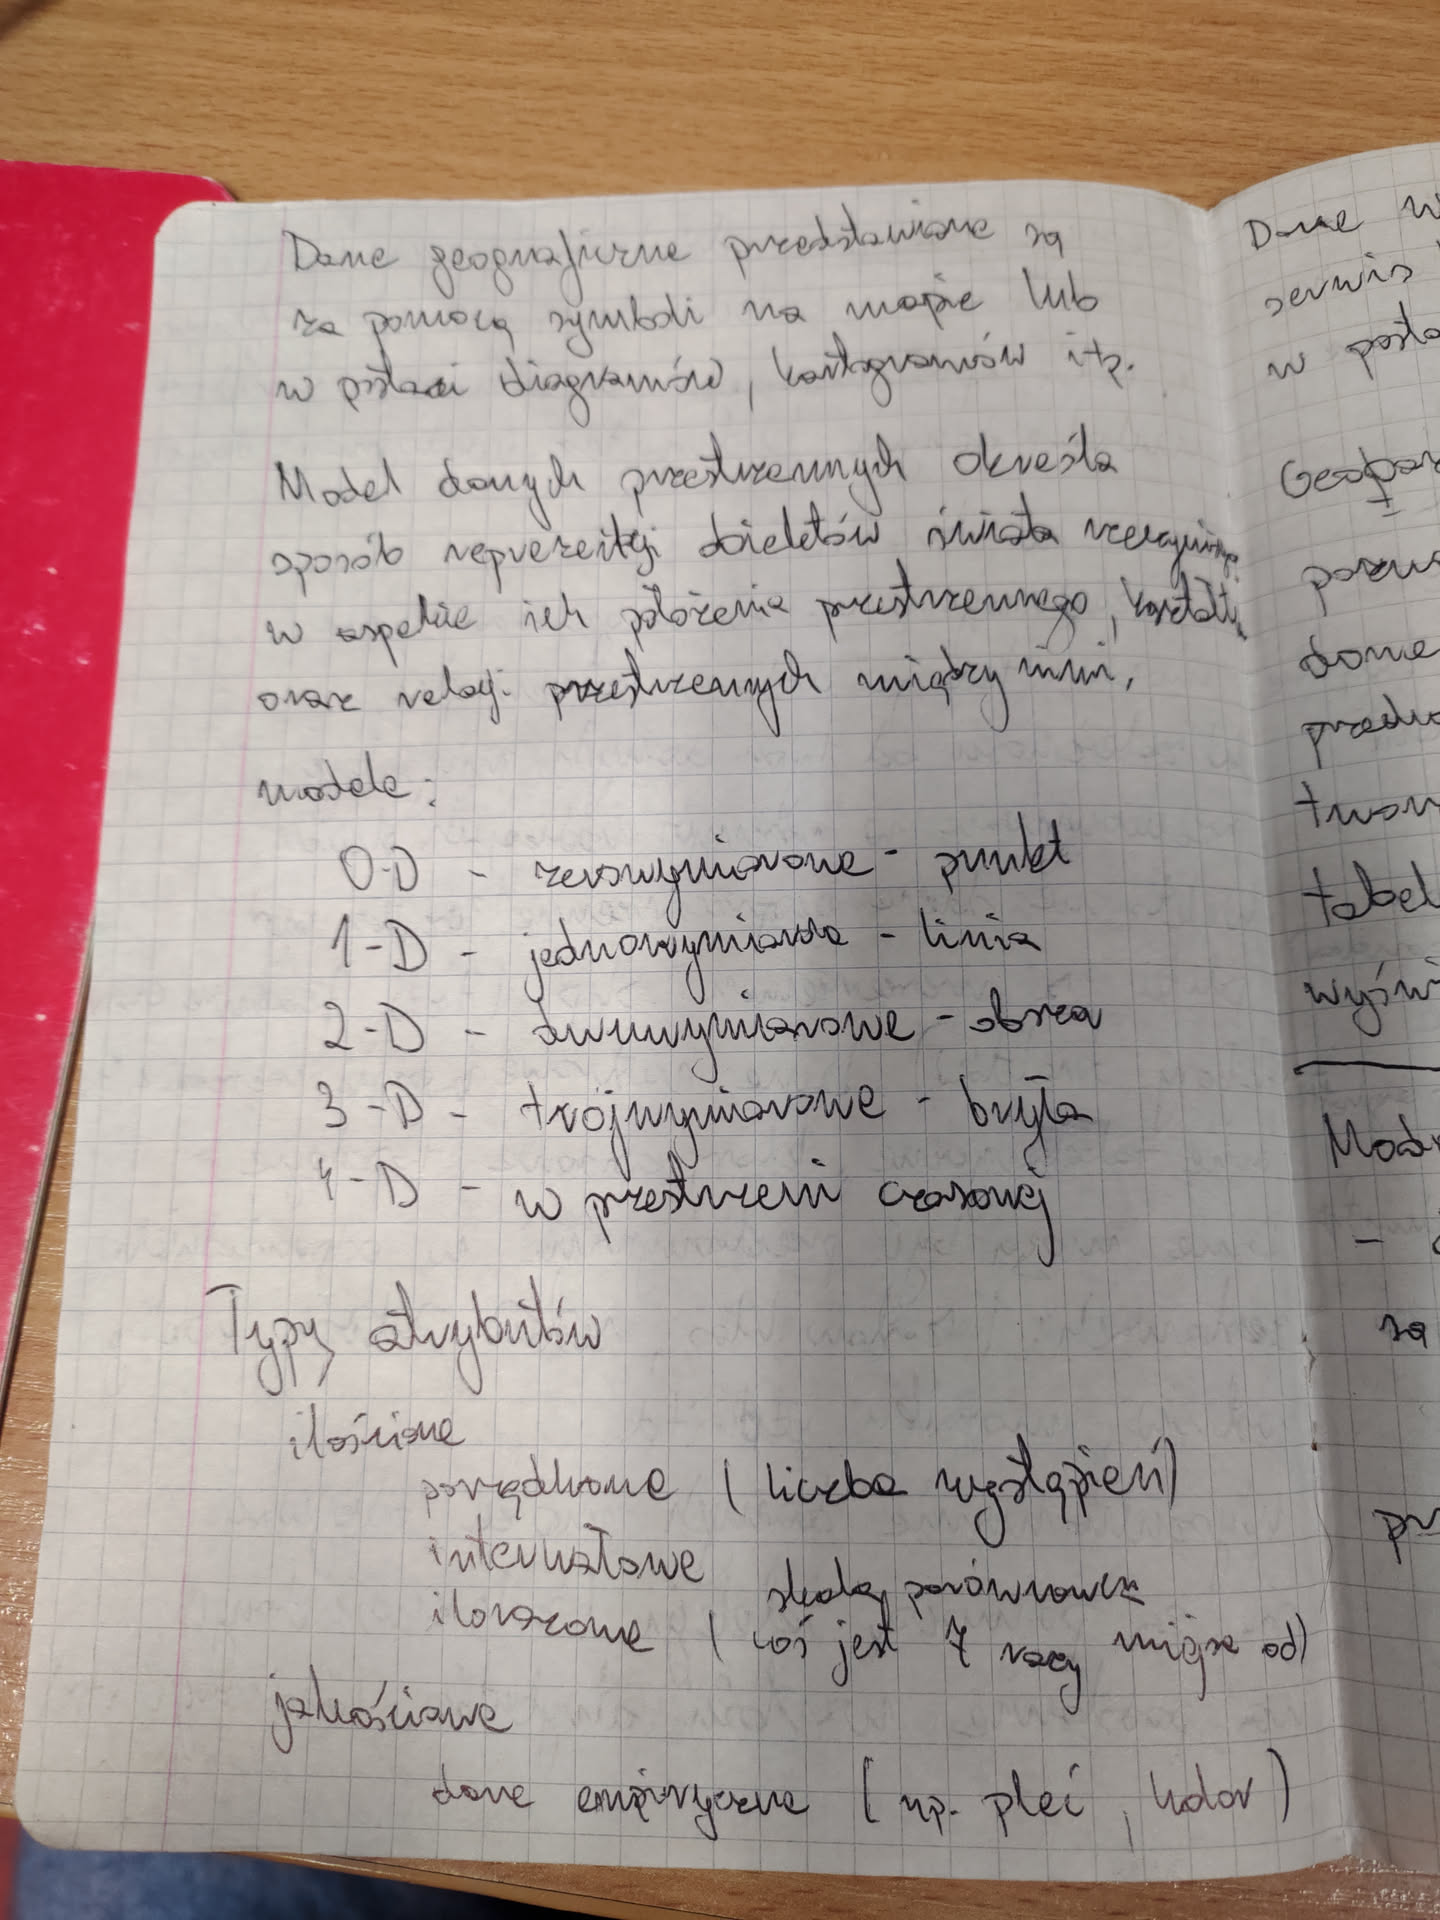 Dane geograficzne przedstawiane są
za pomocą symboli na mapie lub
w postaci diagramów, kartogramów itp.
Model danych przestrzennych określa
sposób reprezentacji obiektów świata rzeczywistego
w aspekcie ich położenia przestrzennego, kształtu
oraz relacji przestrzennych między nimi,
modele:
0-D - zerowymiarowe - punkt
1-D - jednowymiarowe - linia
2-D - dwuwymiarowe - obszar
3-D - trójwymiarowe - bryła
4-D - w przestrzeni czasowej
Typy atrybutów
ilościowe
porządkowe (liczba wystąpień)
interwałowe
skala porównawcza
ilorazowe (coś jest 7 razy większe od)
jakościowe
dane empiryczne (np. płeć, kolor)
Dane
serwis
w